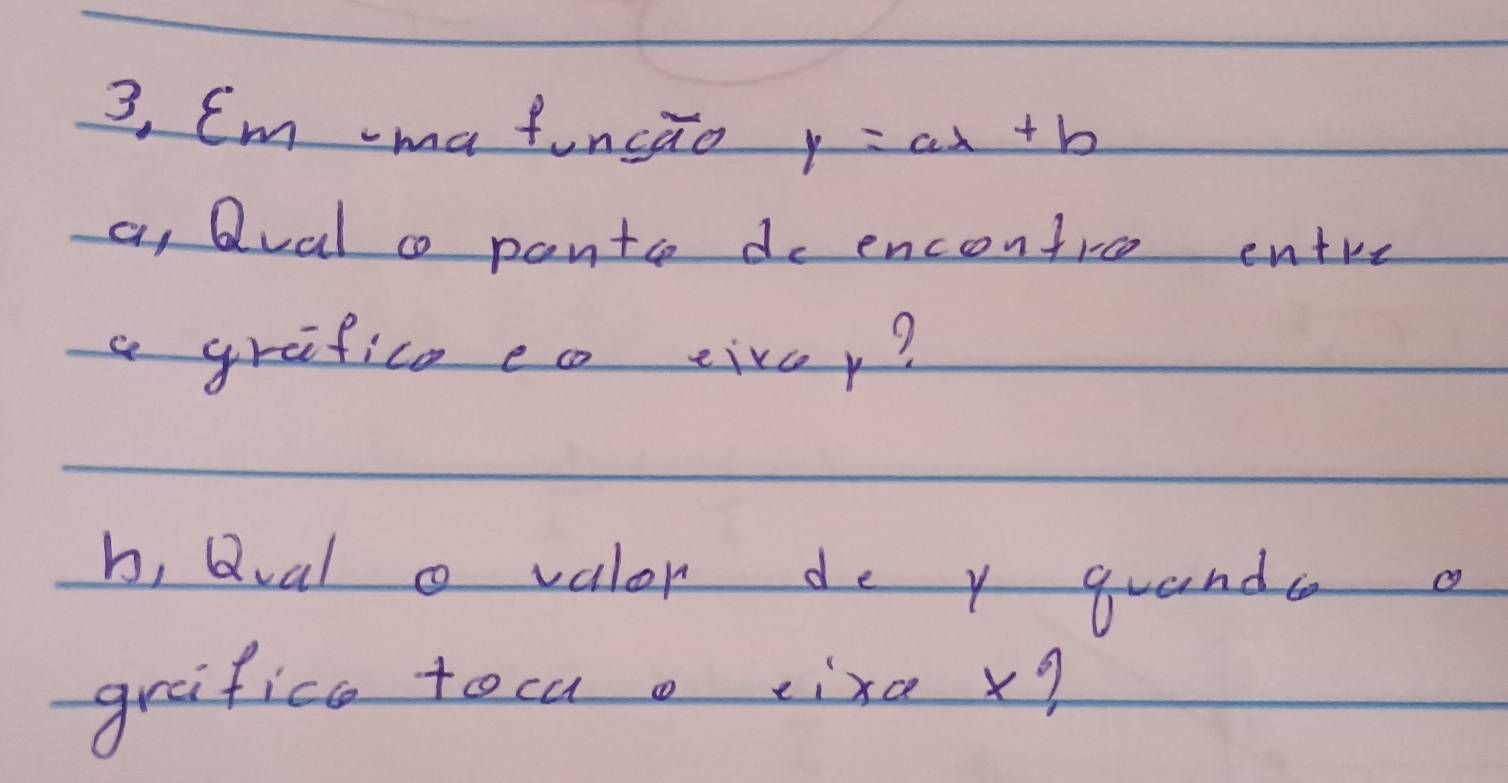 3, Em uma função y = ax + b
a, Qual o ponto de encontro entre
o gráfico e o eixo y?
b, Qual o valor de y quando o
gráfico toca o eixo x?